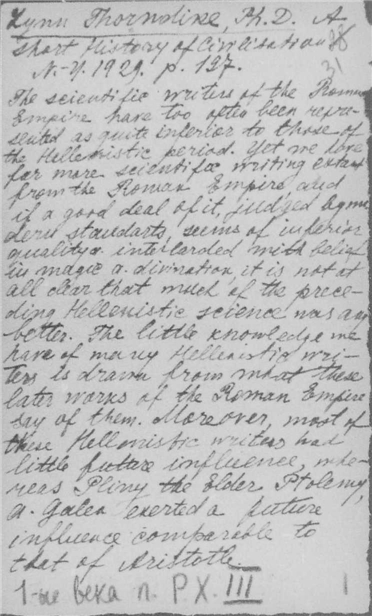 Lynn Thorndike, Ph. D. A
short History of Civilisation
38
N.-Y. 1929. p. 137.
31
The scientific writers of the Roman
Empire have too often been repre-
sented as quite inferior to those of
the Hellenistic period. Yet we have
far more scientific writing extant
from the Roman Empire, and
if a good deal of it, judged by mo
dern standarts, seems of inferior
quality & interlarded with belief
in magic & divination, it is not at
all clear that much of the prece-
ding Hellenistic science was any
better. The little knowledge we
have of many Hellenistic wri-
ters is drawn from what these
later works of the Roman Empire
say of them. Moreover, most of
these Hellenistic writers had
little future influence, whe-
reas Pliny the Elder, Ptolemy,
a. Galen exerted a future
influence comparable to
that of Aristotle.
1-ые века п. Р. Х. III
1